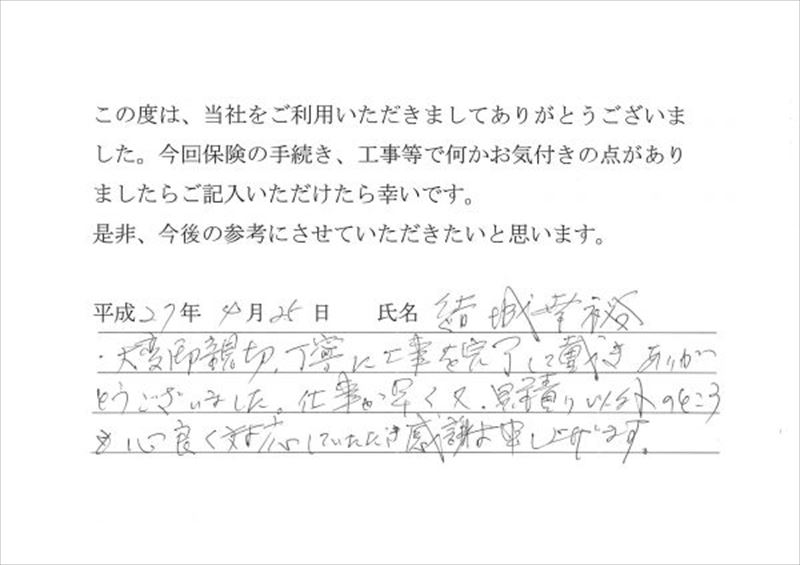 この度は、当社をご利用いただきましてありがとうございま
した。今回保険の手続き、工事等で何かお気付きの点があり
ましたらご記入いただけたら幸いです。
是非、今後の参考にさせていただきたいと思います。
平成27年 4月25日 氏名 結城幸裕
・大変御親切、丁寧に工事を完了して戴きありが
とうございました。仕事が早く又、見積り以外のところ
も心良く対応していただき感謝申し上げます。